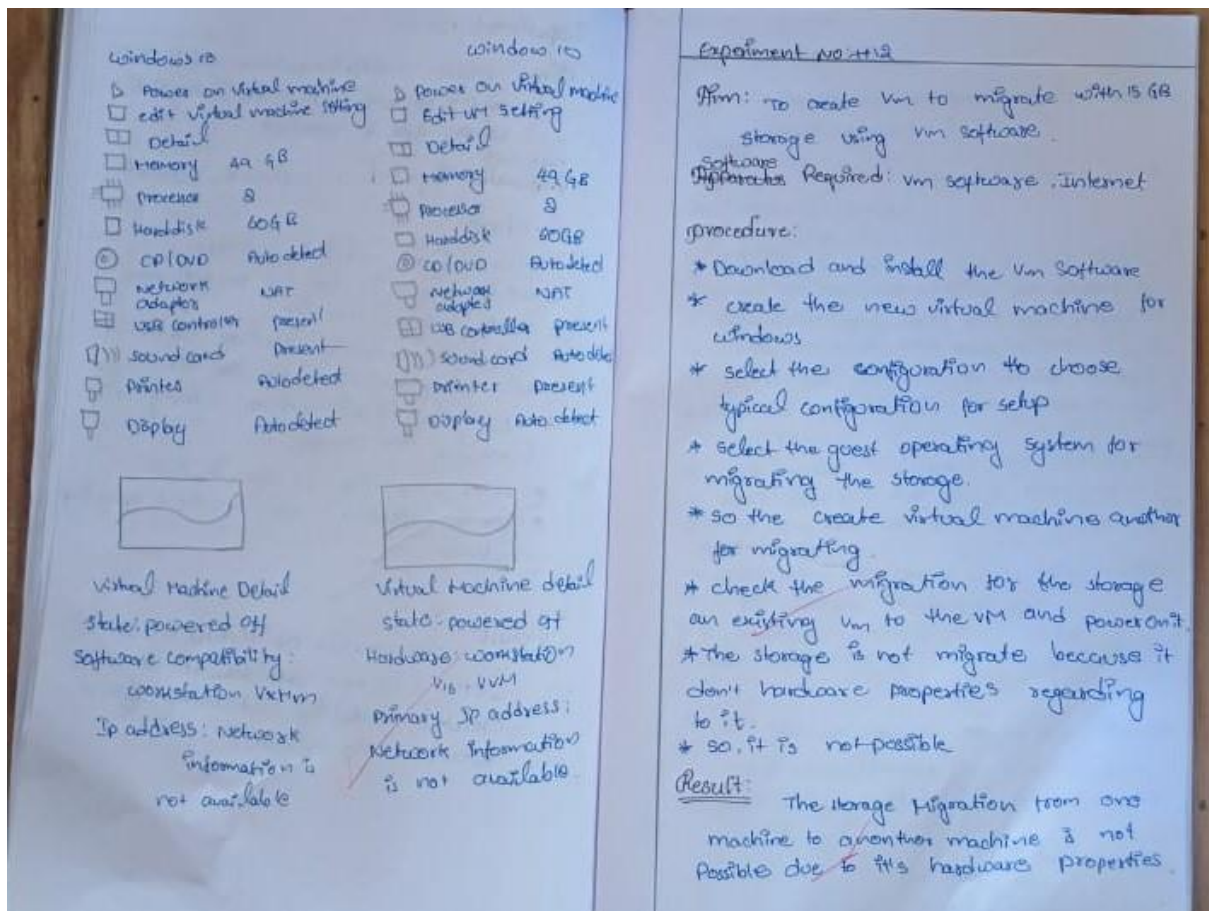 windows 10
Power on Virtual machine
edit virtual machine setting
Detail
Memory 49 GB
Processor 2
Harddisk 60GB
CD/DVD Auto detect
Network NAT
adaptor
USB Controller present
Sound card Present
Printer Autodetect
Display Autodetect
Virtual Machine Detail
state: powered off
Software compatibility:
workstation
Ip address: Network
information is
not available
window 10
power on Virtual machine
Edit VM Setting
Detail
Memory 49 GB
processor 2
Harddisk 60GB
CD/DVD Autodetect
Network NAT
adapter
USB controller present
Sound card Auto detec
printer present
Display Auto detect
Virtual Machine detail
state: powered off
Hardware: workstation
Primary Ip address:
Network information
is not available.
Experiment No: #12
Aim: To create Vm to migrate with 15 GB
storage using vm software.
Software
Apparatus Required: vm software, Internet
procedure:
* Download and install the Vm Software
* create the new virtual machine for
windows
* select the configuration to choose
typical configuration for setup
* select the guest operating system for
migrating the storage.
* so the create virtual machine another
for migrating.
* check the migration for the storage
an existing vm to the VM and power on it.
* The storage is not migrate because it
don't hardware properties regarding
to it.
* so, it is not possible
Result:
The storage Migration from one
machine to anonther machine is not
Possible due to it's hardware properties.